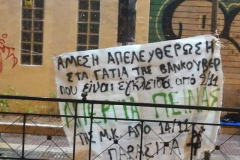 ΑΜΕΣΗ ΑΠΕΛΕΥΘΕΡΩΣΗ
ΣΤΑ ΓΑΤΙΑ ΤΗΣ ΒΑΝΚΟΥΒΕΡ
ΠΟΥ ΕΙΝΑΙ ΕΓΚΛΕΙΣΤΑ ΑΠΟ 9/11
ΑΠΕΡΓΙΑ ΠΕΙΝΑΣ
ΑΠΟ 14/11
ΠΑΡΑΣΙΤΑ